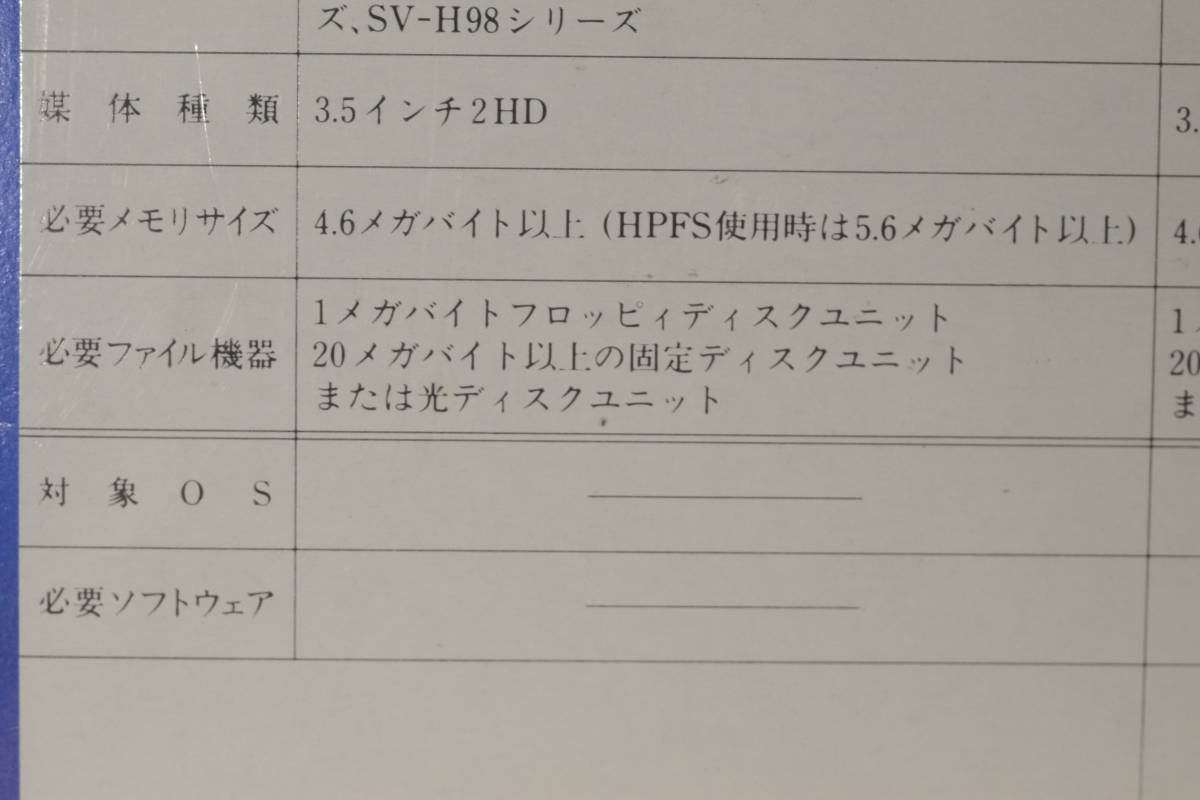 ズ、SV-H98シリーズ
媒体種類 3.5インチ2HD 3.
必要メモリサイズ 4.6メガバイト以上 (HPFS使用時は5.6メガバイト以上) 4.
1メガバイトフロッピィディスクユニット 1
必要ファイル機器 20メガバイト以上の固定ディスクユニット 20
または光ディスクユニット ま
対象OS
必要ソフトウェア